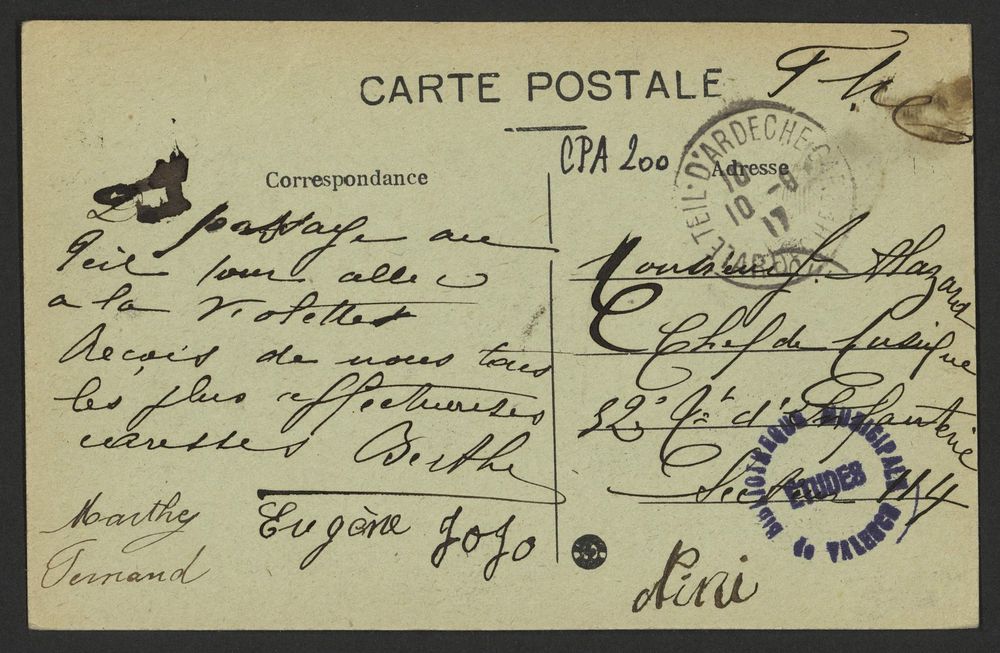 CARTE POSTALE
CPA 200
Correspondance
Adresse
LE TEIL-D'ARDECHE
10 -8
17
passage au
Teil pour aller
a la Violettes
Reçois de nous tous
les plus affectueuses
caresses Berthe
Eugène JoJo
Marthe
Fernand
Monsieur J. Mazard
Chef de Musique
52e Rt d'Infanterie
Secteur 114
BIBLIOTHEQUE MUNICIPALE
ETUDES
DE VALENCE
Nini